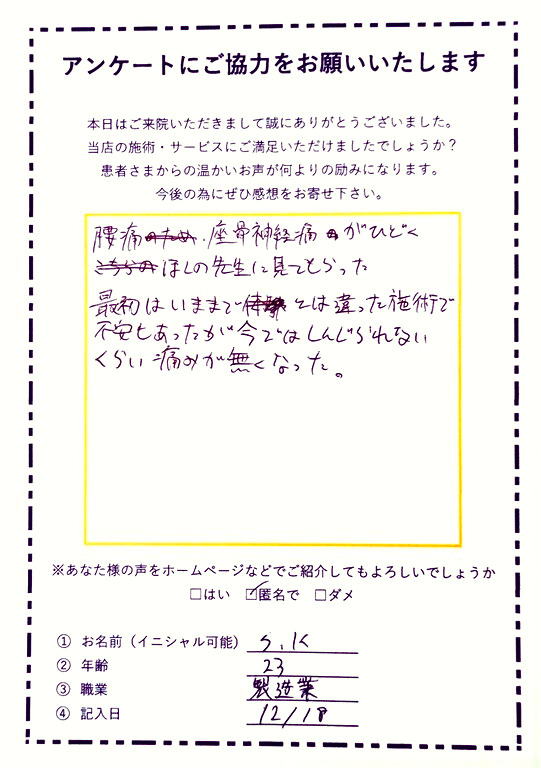 アンケートにご協力をお願いいたします
本日はご来院いただきまして誠にありがとうございました。
当店の施術・サービスにご満足いただけましたでしょうか?
患者さまからの温かいお声が何よりの励みになります。
今後の為にぜひ感想をお寄せ下さい。
腰痛のため.座骨神経痛がひどく
こちらのほしの先生に見てもらった
最初はいままでとは違った施術で
不安もあったが今ではしんじられない
くらい痛みが無くなった。
※あなた様の声をホームページなどでご紹介してもよろしいでしょうか
□はい ☑匿名で □ダメ
① お名前(イニシャル可能) S.K
② 年齢 23
③ 職業 製造業
④ 記入日 12/18